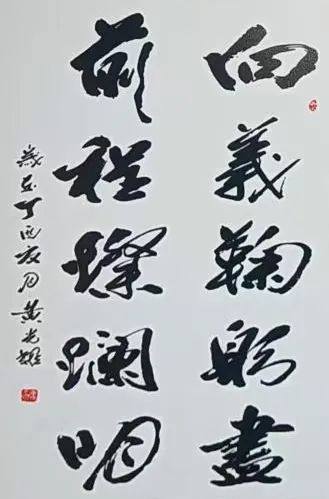 向義鞠躬盡
前程燦爛明
歲在丁酉夏月黃光雄